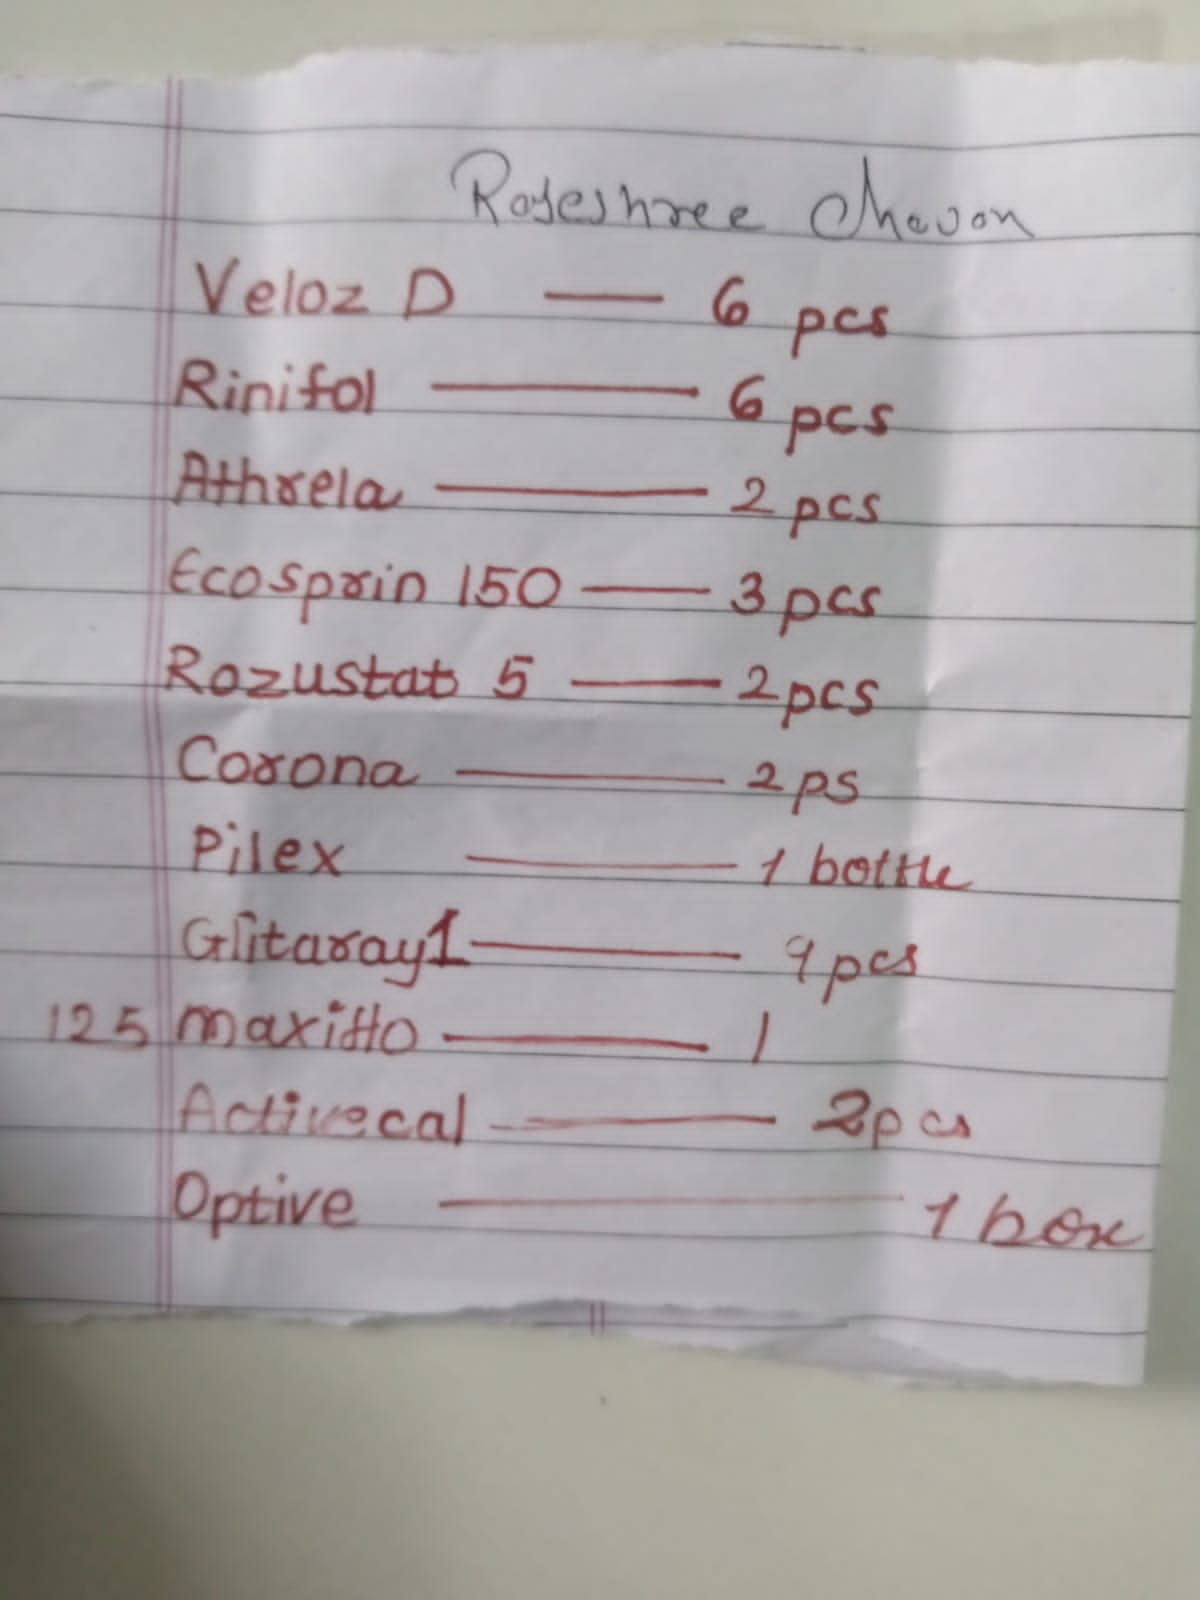 Rajeshree Chavan
Veloz D — 6 pcs
Rinifol — 6 pcs
Athrela — 2 pcs
Ecosprin 150 — 3 pcs
Rozustat 5 — 2 pcs
Corona — 2 ps
Pilex — 1 bottle
Glitaray 1 — 9 pcs
125 maxitto — 1
Activecal — 2 pcs
Optive — 1 box